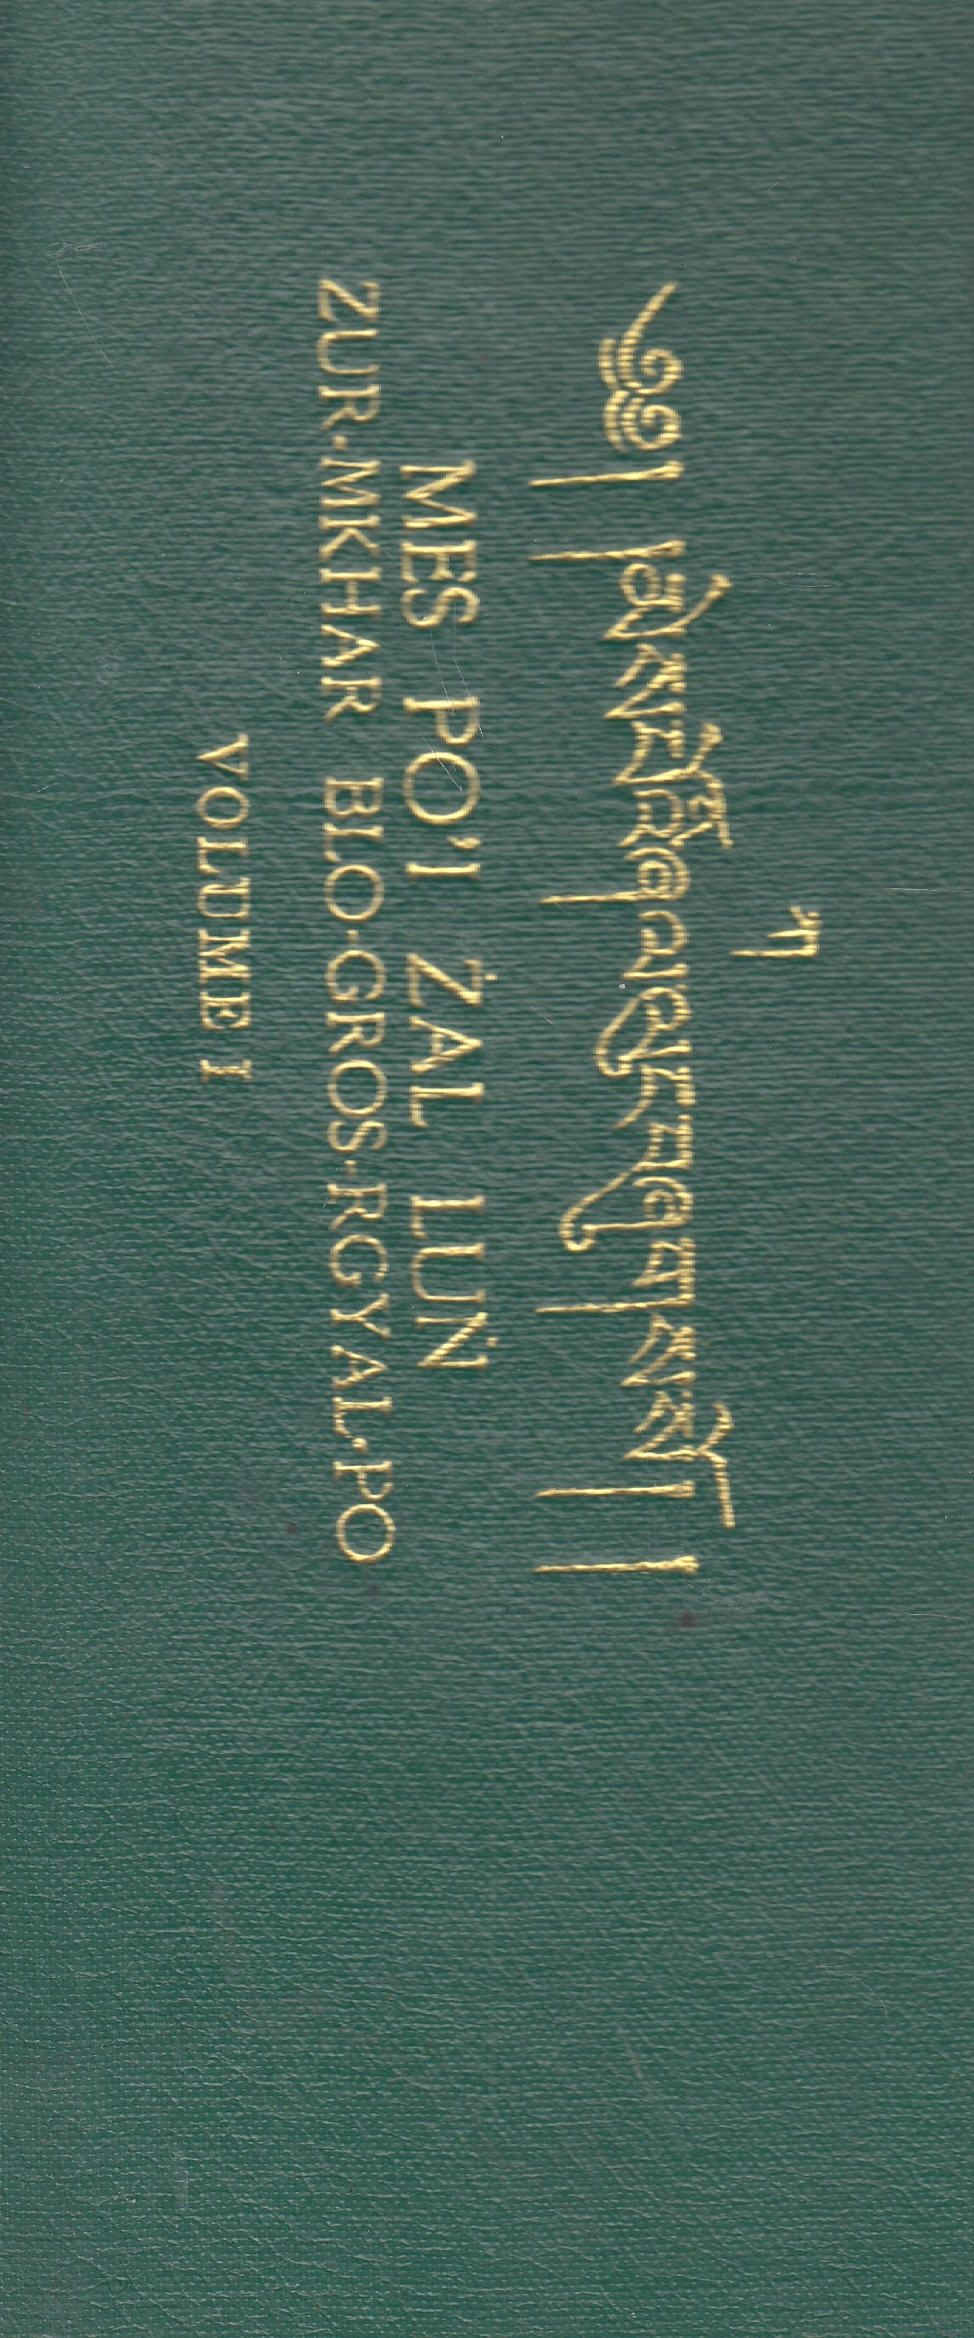 ཀ
༄༅། །མེས་པོའི་ཞལ་ལུང་བཞུགས་སོ། །
MES PO'I ŻAL LUṄ
ZUR-MKHAR BLO-GROS-RGYAL-PO
VOLUME I